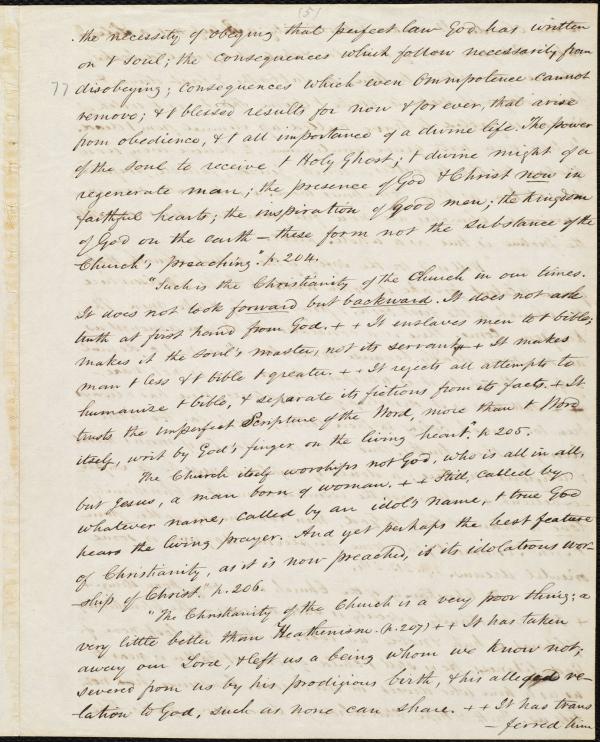 (5)
the necessity of obeying that perfect law God has written
on t soul; the consequences which follow necessarily from
77 disobeying; consequences which even Omnipotence cannot
remove; & t blessed results for now & for ever, that arise
from obedience, & t all importance of a divine life. The power
of the soul to receive t Holy Ghost; t divine might of a
regenerate man; the presence of God & Christ now in
faithful hearts; the inspiration of good men; the kingdom
of God on the earth – these form not the substance of the
Church's preaching". p. 204.
"Such is the Christianity of the Church in our times.
It does not look forward but backward. It does not ask
truth at first hand from God. + + It enslaves men to t bible;
makes it the soul's master, not its servant + + It makes
man t less & t bible t greater. + + It rejects all attempts to
humanize t bible, & separate its fictions from its facts. + It
trusts the imperfect Scripture of the Word, more than t Word
itself, writ by God's finger on the living heart". p. 205.
The Church itself worships not God, who is all in all,
but Jesus, a man born of woman. + + Still, called by
whatever name, called by an idol's name, t true God
hears the living prayer. And yet perhaps the best feature
of Christianity, as it is now preached, is its idolatrous wor-
-ship of Christ. p. 206.
"The Christianity of the Church is a very poor thing; a
very little better than Heathenism. (p. 207) + + It has taken
away our Lord, & left us a being whom we know not;
severed from us by his prodigious birth, & his alleged re-
-lation to God, such as none can share. + + It has trans
-ferred him